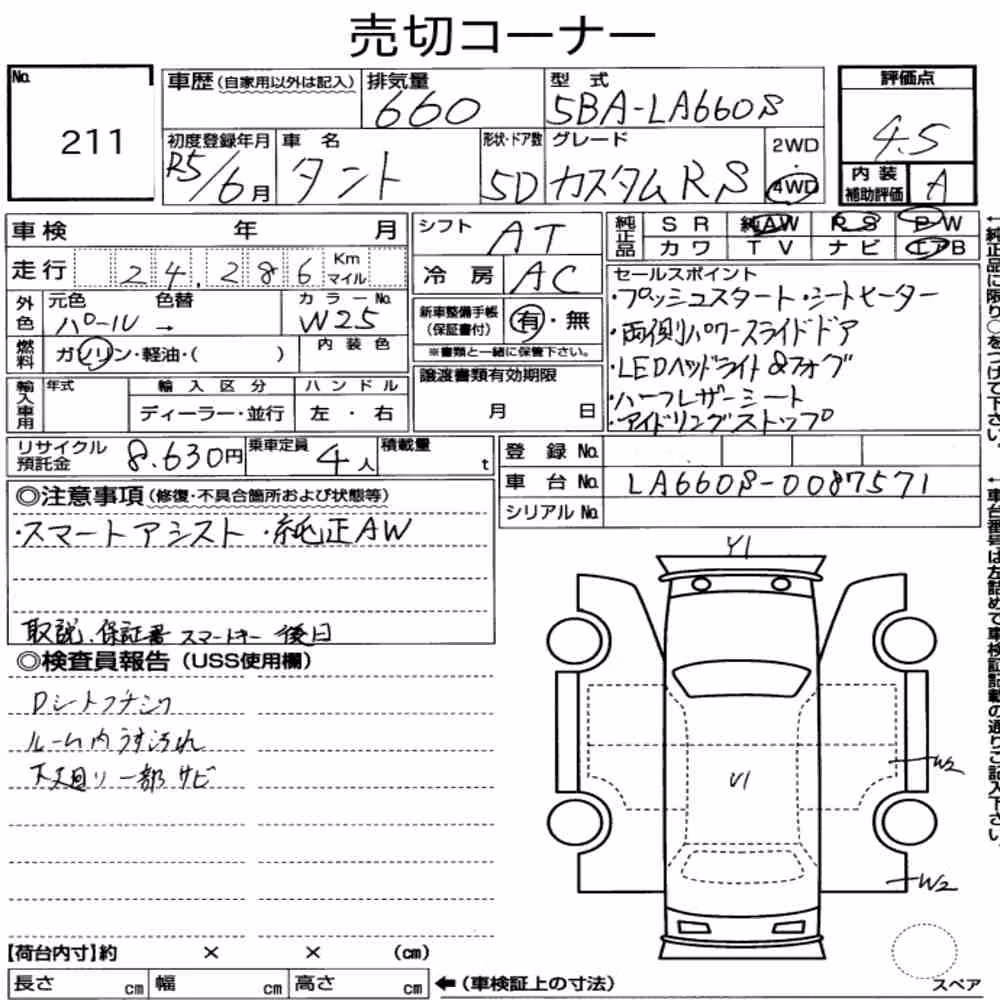 売切コーナー
No.
211
車歴(自家用以外は記入)
排気量
660
型式
5BA-LA660S
評価点
4.5
初度登録年月
R5/6月
車名
タント
形状・ドア数
5D
グレード
カスタムRS
2WD
・
4WD
内装
補助評価
A
車検 年 月
走行 24,286 Km
マイル
シフト
AT
冷房
AC
純正品
SR 純AW RS PW
カワ TV ナビ エアB
外色
元色 色替
パール →
カラーNo.
W25
燃料
ガソリン・軽油・( )
内装色
新車整備手帳
(保証書付)
有・無
※書類と一緒に保管下さい。
セールスポイント
・プッシュスタート・シートヒーター
・両側パワースライドドア
・LEDヘッドライト&フォグ
・ハーフレザーシート
・アイドリングストップ
輸入車用
年式
輸入区分
ディーラー・並行
ハンドル
左・右
譲渡書類有効期限
月 日
リサイクル
預託金
8,630円
乗車定員
4人
積載量
t
登録No.
車台No.
LA660S-0087571
シリアルNo.
◎注意事項(修復・不具合箇所および状態等)
・スマートアシスト ・純正AW
取説、保証書 スマートキー 後日
◎検査員報告(USS使用欄)
Dシートフチシワ
ルーム内うす汚れ
下廻り一部サビ
Y1
U1
W2
W2
【荷台内寸】約 × × (cm)
長さ cm 幅 cm 高さ cm
←(車検証上の寸法)
スペア
←純正品に限り○をつけて下さい。
←車台番号は左詰めで車検証記載の通りご記入下さい。